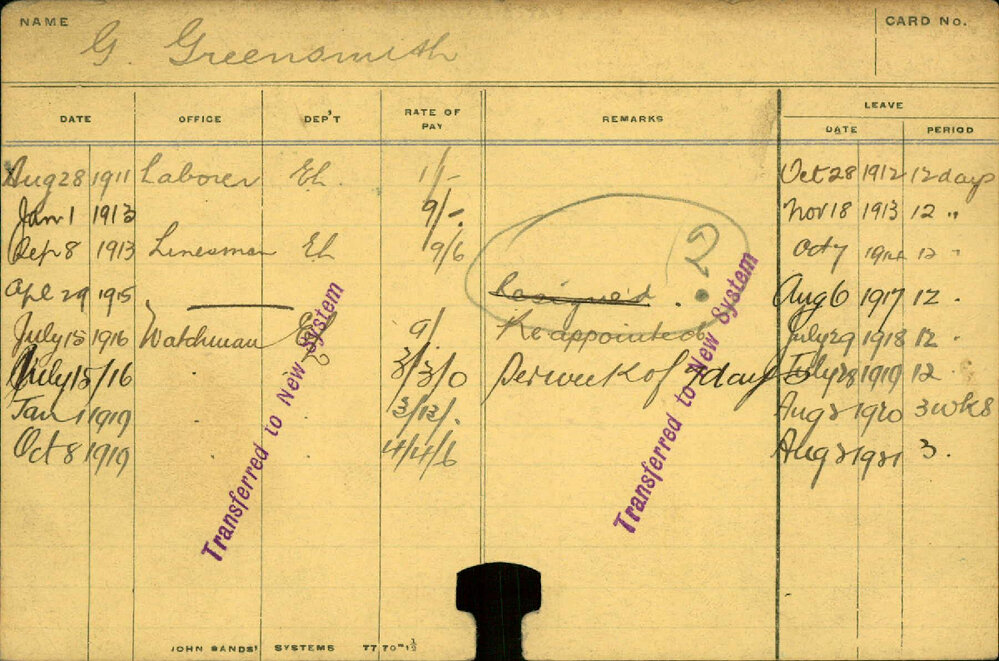 NAME G. Greensmith CARD No.
DATE OFFICE DEP'T RATE OF PAY REMARKS LEAVE DATE PERIOD
Aug 28 1911 Laborer El. 1/- Oct 28 1912 12 days
Jan 1 1913 9/-. Nov 18 1913 12 "
Sep 8 1913 Linesman El 9/6 Oct 7 1914 12 "
Apl 29 1915 Resigned . ? Aug 6 1917 12 .
July 15 1916 Watchman El 9/ Reappointed July 29 1918 12 .
July 15/16 3/3/0 Per week of 7 days July 28 1919 12 .
Jan 1 1919 3/13/. Aug 2 1920 3 wks
Oct 8 1919 4/4/6 Aug 2 1921 3 .
Transferred to New System
Transferred to New System
JOHN SANDS' SYSTEMS